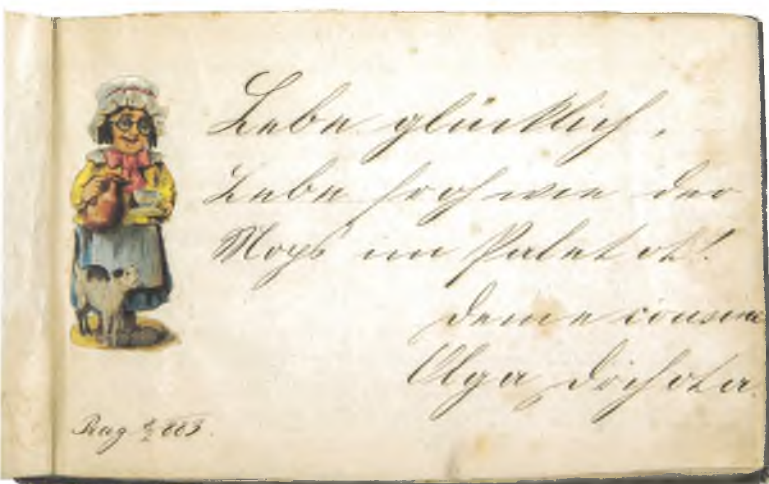 Lebe glücklich,
Lebe froh wie der
Mops im Paletot!
Deine cousine
Olga
Prag